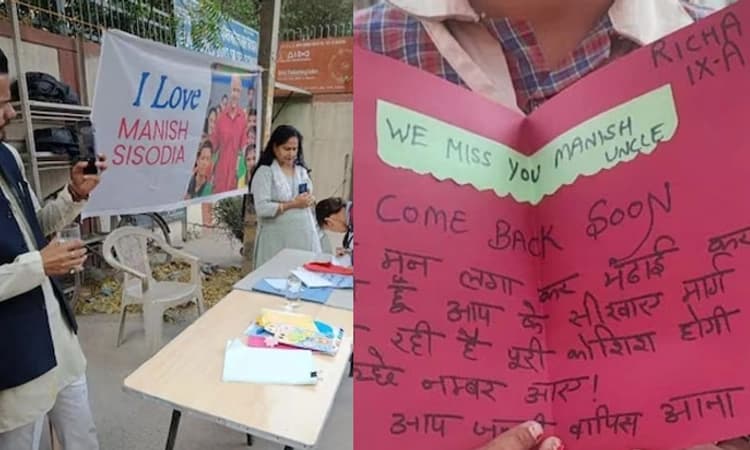 I Love
MANISH
SISODIA
RICHA
IX-A
WE MISS YOU MANISH
UNCLE
COME BACK SOON
मन लगा कर पढ़ाई कर
हूँ आप के सीखाए मार्ग
रही है पूरी कोशिश होगी
नम्बर आए!
आप वापिस आना